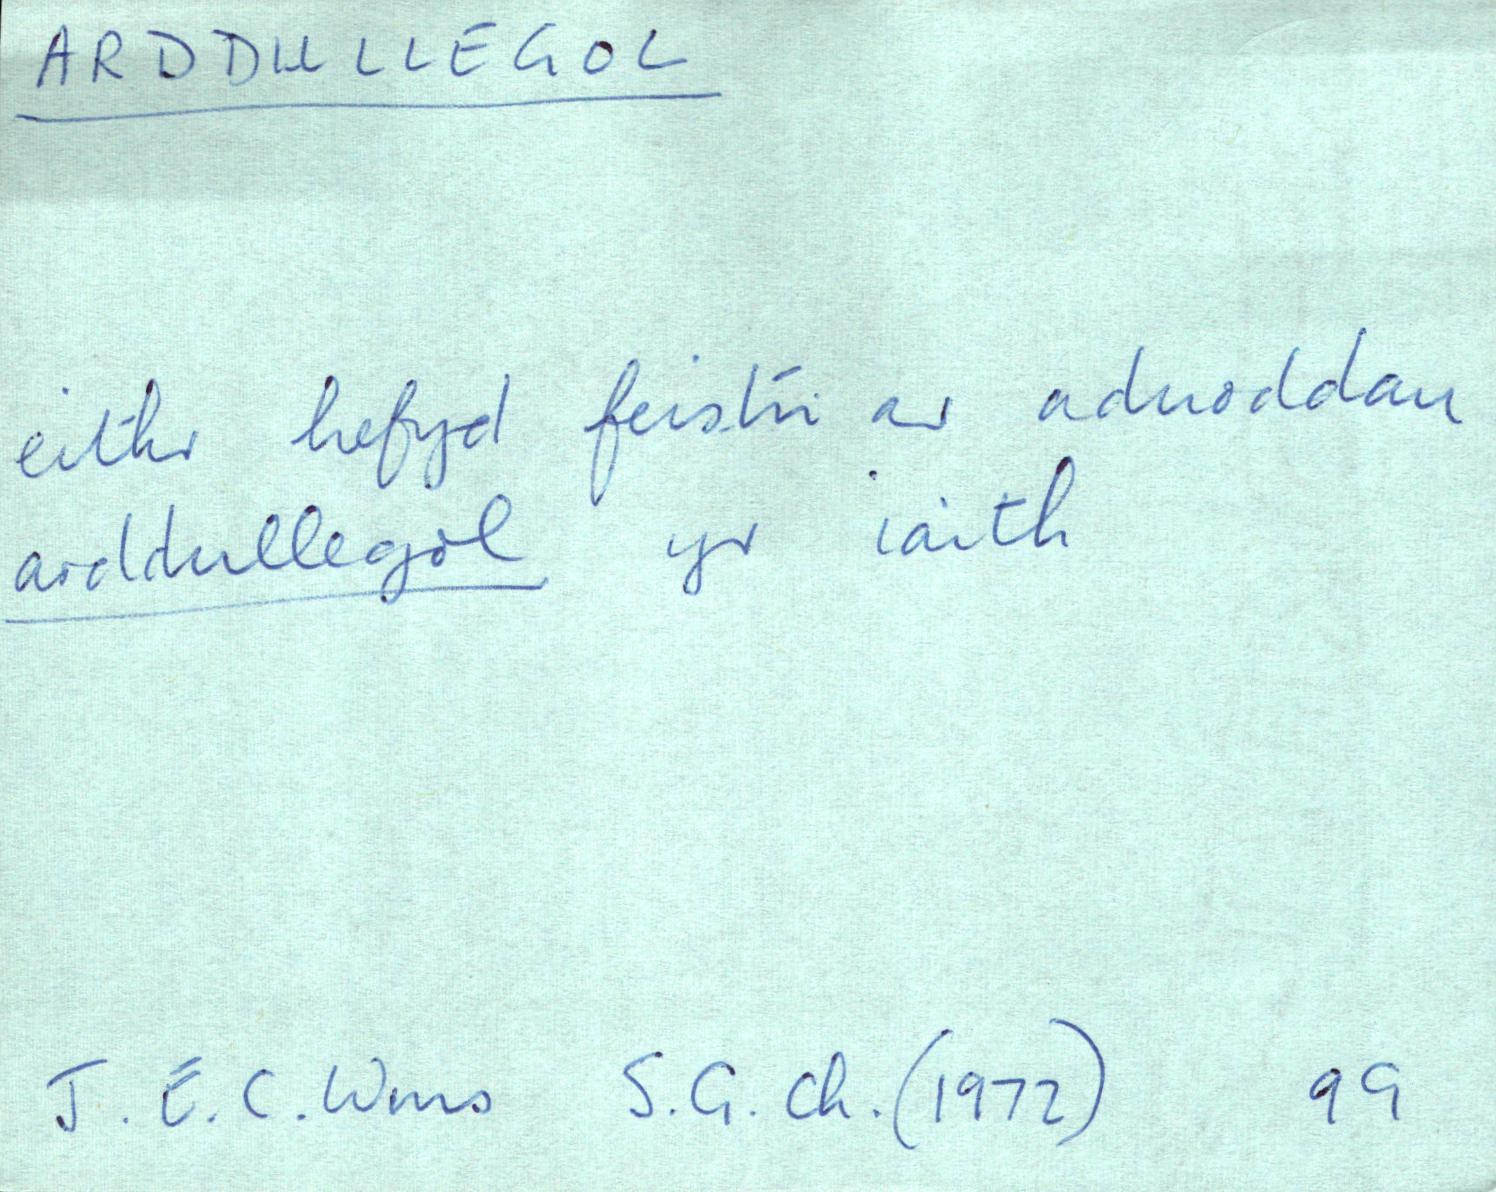 ARDDULLEGOL
eithr hefyd feistri ar adnoddau
arddullegol yr iaith
J. E. C. Wms S. G. Ch. (1972) 99